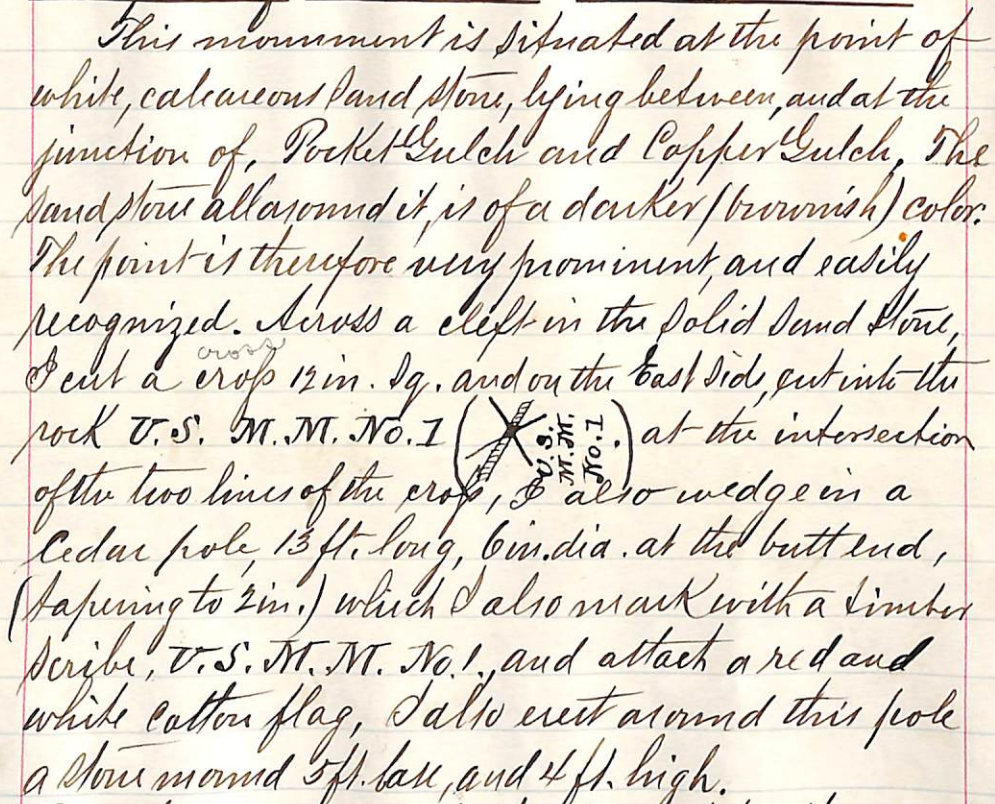 This monument is situated at the point of
white, calcareous Sand stone, lying between, and at the
junction of, Pocket Gulch and Copper Gulch. The
sand stone all around it, is of a darker (brownish) color.
The point is therefore very prominent, and easily
recognized. Across a cleft in the solid Sand Stone,
cross
I cut a cross 12 in. sq. and on the East side, cut into the
rock U.S. M.M. No. 1 ( U.S. M.M. No. 1 ) at the intersection
of the two lines of the cross, I also wedge in a
Cedar pole, 13 ft. long, 6 in. dia. at the butt end,
(tapering to 2 in.) which I also mark with a timber
scribe, U.S. M.M. No 1., and attach a red and
white cotton flag, I also erect around this pole
a stone mound 5 ft. base, and 4 ft. high.